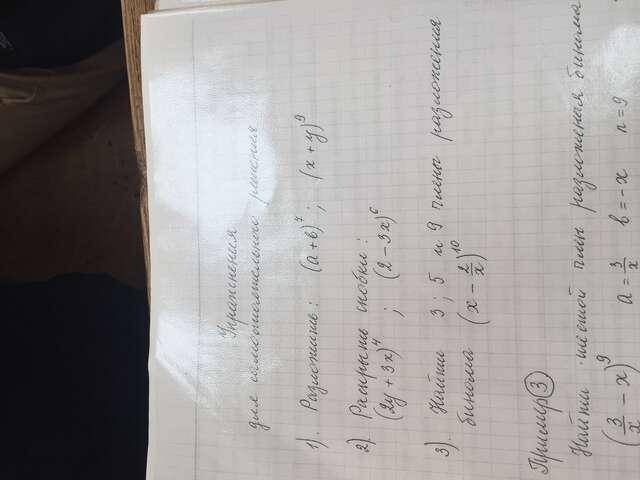 Упражнения
для самостоятельного решения
1). Разложить: (a+b)⁷; (x+y)⁹
2). Раскрыть скобки:
(2y+3x)⁴ ; (2-3x)⁶
3). Найти 3; 5 и 9 члены разложения
бинома (x - 2/x)¹⁰
Пример ③
Найти шестой член разложения бинома
(3/x - x)⁹ a = 3/x b = -x n = 9